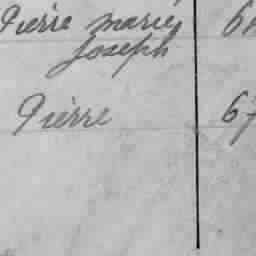 Pierre Marie
Joseph
Pierre 67